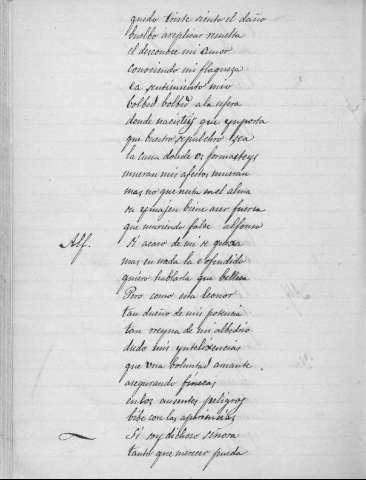 quedo triste siento el daño
buelbo areplicar resuelta
el decoro mi amor
conociendo mi flaqueza
ea sentimiento mio
bolbed bolbed a la esfera
donde nacisteys que ymporta
que buestro sepulchro sea
la cuna donde os formasteys
mueran mis afectos mueran
mas no que en el alma
su ymajen biene aser fuerza
que muriendo falte alfonso
Alf. Si acaso de mi se quexa
mas en nada la e ofendido
quiero hablarla que belleza
Pero como esta leonor
tan dueño de mis potencias
tan reyna de mi albedrio
dudo mis yntelixencias
que una boluntad amante
asegurando finezas
en los ausentes peligros
bibe con las apariencias
Si soy dichoso señora
tanto que merecer pueda